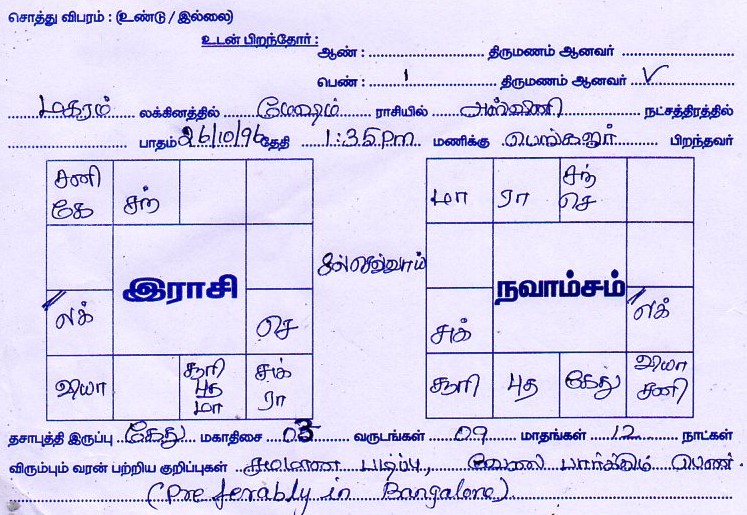 சொத்து விபரம் : (உண்டு / இல்லை)
உடன் பிறந்தோர் :
ஆண் : திருமணம் ஆனவர்
பெண் : 1 திருமணம் ஆனவர் ✓
மகரம் லக்கினத்தில் மேஷம் ராசியில் அஸ்வினி நட்சத்திரத்தில்
பாதம் 26/10/96 தேதி 1:35 Pm மணிக்கு பெங்களூர் பிறந்தவர்
சனி கே சந்
இராசி
லக் செ
வியா சூரி புத மா சுக் ரா
மா ரா சந் செ
நவாம்சம்
சுக் லக்
சூரி புத கேது வியா சனி
தசாபுத்தி இருப்பு கேது மகாதிசை 03 வருடங்கள் 09 மாதங்கள் 12 நாட்கள்
விரும்பும் வரன் பற்றிய குறிப்புகள் சமமான படிப்பு, வேலை பார்க்கும் பெண்.
(Preferably in Bangalore)